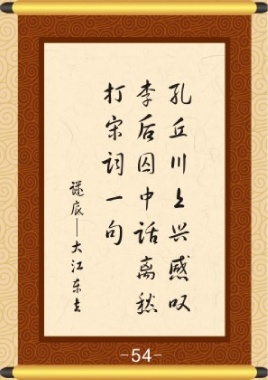 孔丘川上兴感叹
李后囚中话离愁
打宋词一句
谜底——大江东去
-54-